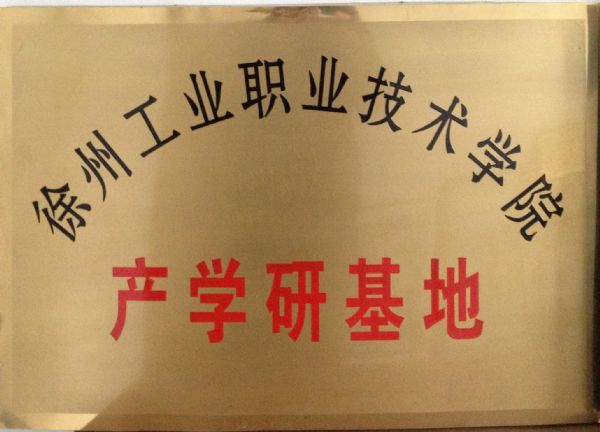 徐州工业职业技术学院
产学研基地